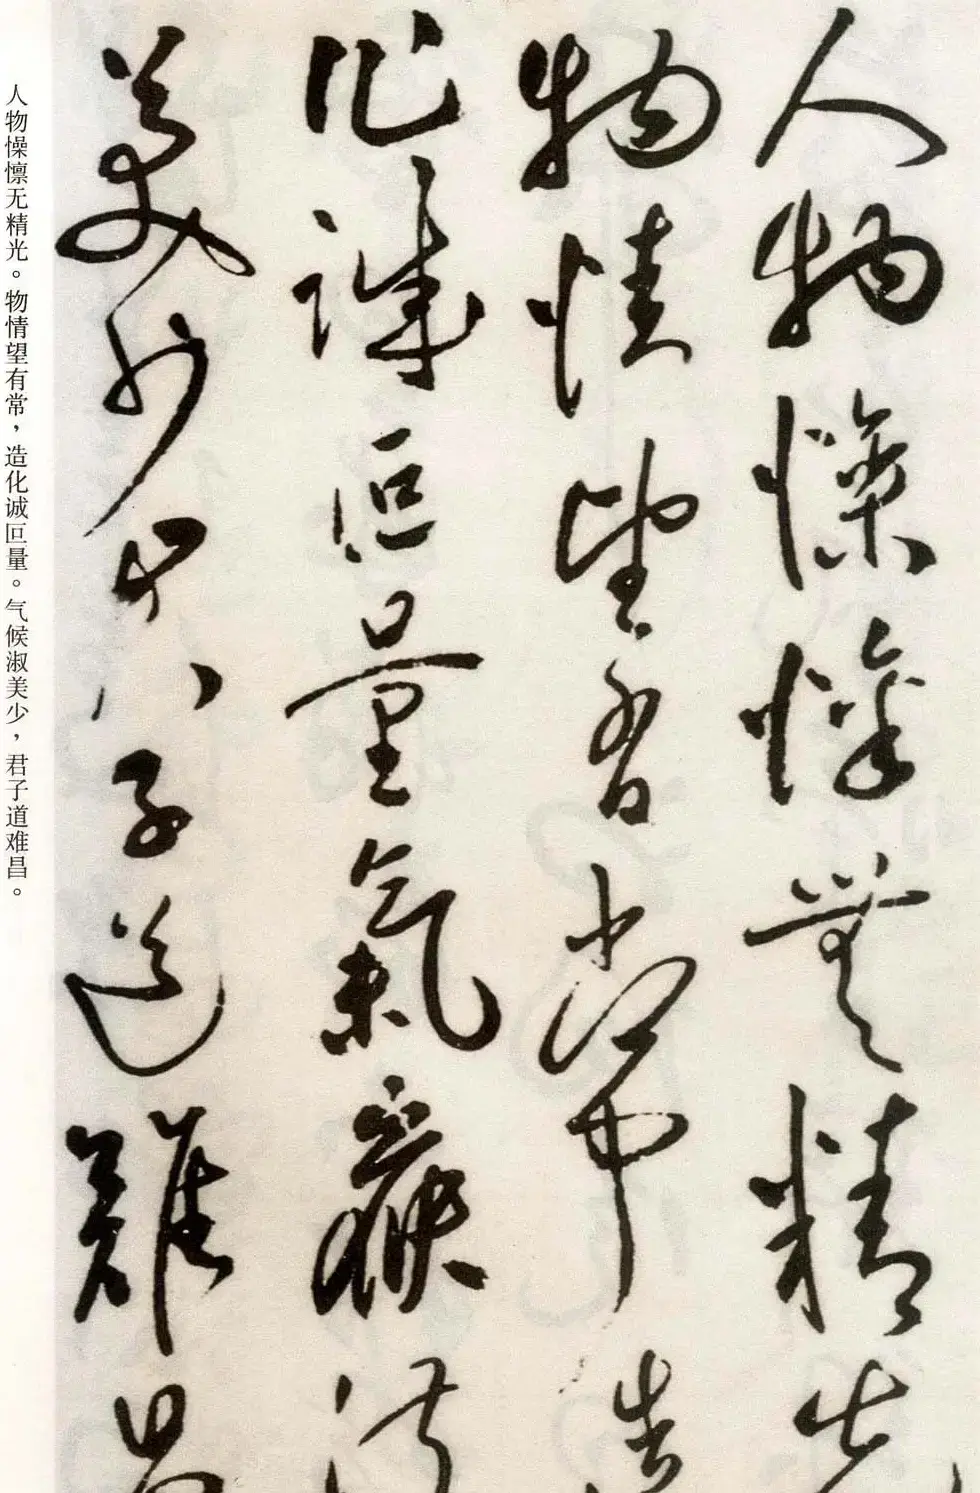 人物懆懍無精光
物情望有常造
化誠叵量氣候淑
美少君子道難昌
人物懆懔无精光。物情望有常，造化诚叵量。气候淑美少，君子道难昌。